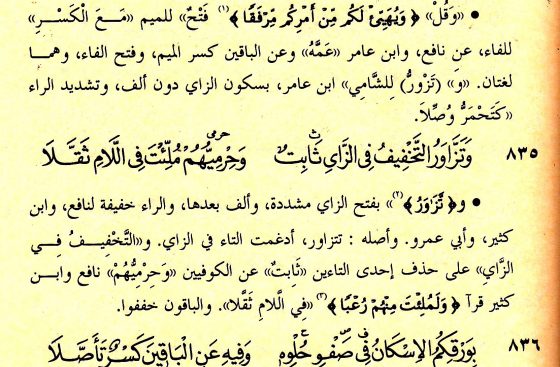 • «وَقُلْ» ﴿ وَيُهَيِّئْ لَكُم مِّنْ أَمْرِكُم مِّرْفَقًا ﴾(١) فَتْحٌ» للميم «مَـعَ الْكَسْـرِ»
للفاء، عن نافع، وابن عامر «عَمَّهُ» وعن الباقين كسر الميم، وفتح الفاء، وهمـا
لغتان. «وَ» (تَزْوَرُّ) لِلشَّامِي» ابن عامر، بسكون الزاي دون ألف، وتشديد الراء
«كَتَحْمَرُّ وُصِّلَا.
٨٣٥ وَتَزَّاوَرُ التَّخْفِيفُ فِي الزَّايِ ثَابِتٌ وَحِرْمِيُّهُمْ مُلِّئْتَ فِي اللَّامِ ثَقَّلَا
• و﴿ تَّزَٰوَرُ ﴾(٢)» بفتح الزاي مشددة، وألف بعدها، والراء خفيفة لنافع، وابن
كثير، وأبي عمرو. وأصله : تتزاور، أدغمت التاء في الزاي. و«التَّخْفِيـفُ فِـي
الزَّايِ» على حذف إحدى التاءين «ثَابِتٌ» عن الكوفيين «وَحِرْمِيُّهُمْ» نافع وابـن
كثير قرآ ﴿ وَلَمُلِّئْتَ مِنْهُمْ رُعْبًا ﴾(٣) «فِي الْلَّامِ ثَقَّلا». والباقون خففوا.
٨٣٦ بِوَرْقِكُمُ الإِسْكَانُ فِي صَفْوِ حُلْوِهِ وَفِيهِ عَنِ الْبَاقِينَ كَسْرٌ تَأَصَّلَا